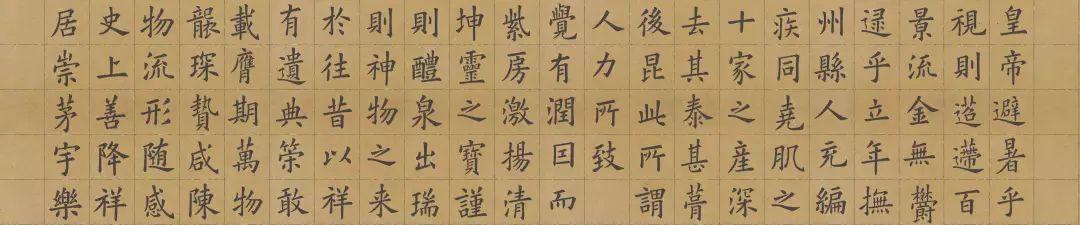 皇帝避暑乎
視則迢遰百
景流金無欝
逮乎立年撫
州縣人充編
疾同堯肌之
十家之産深
去其泰甚葺
後昆此所謂
人力所致
覺有潤囙而
紫房激揚清
坤靈之寶謹
則醴泉出瑞
則神物之来
於往昔以祥
有遺典筞敢
載膺期萬物
龔琛贄咸陳
物流形随感
史上善降祥
居崇茅宇樂